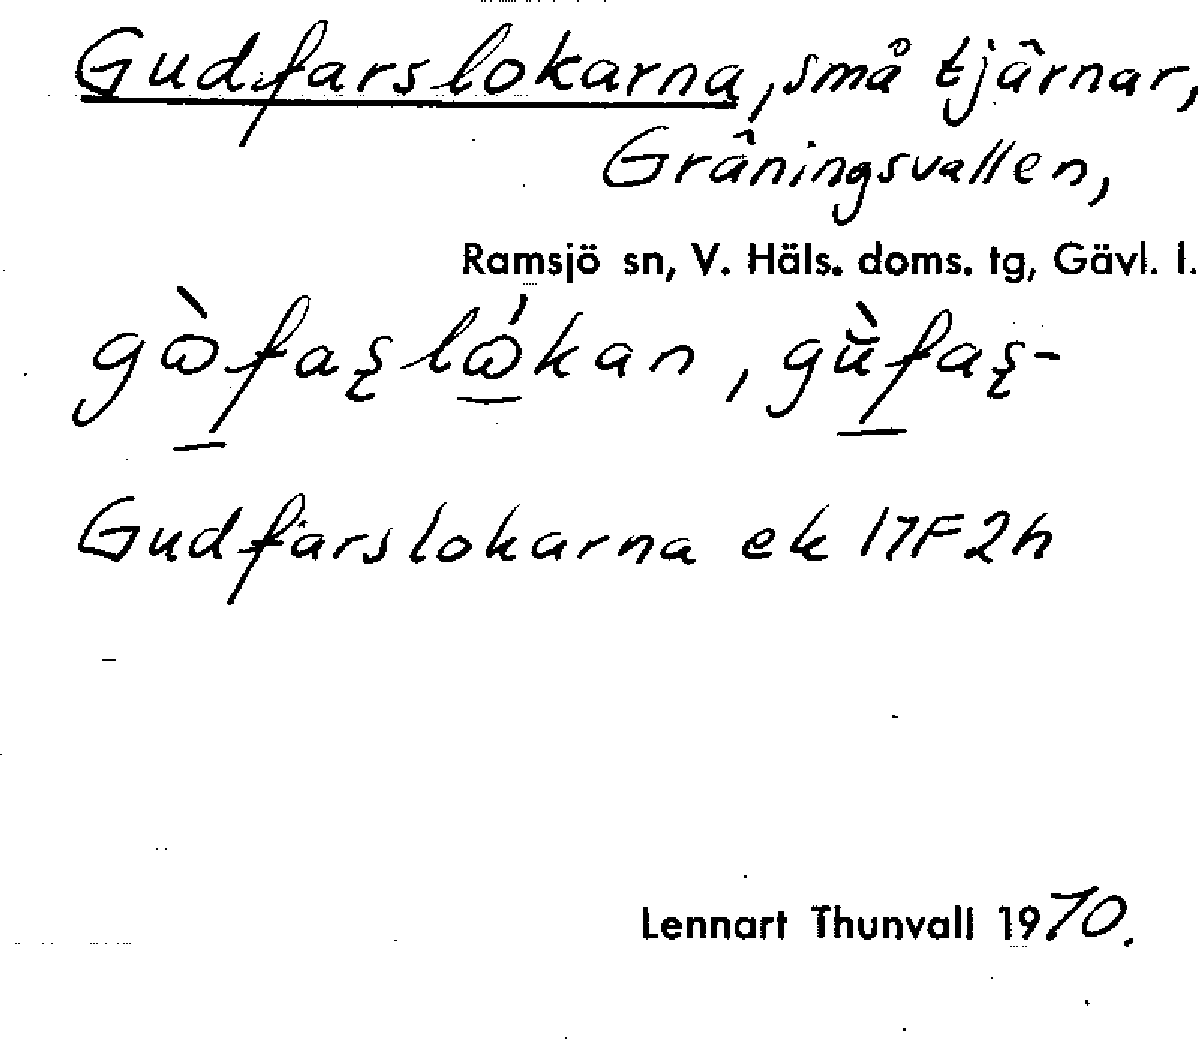 Gudfarslokarna, små tjärnar,
Gräningsvallen,
Ramsjö sn, V. Häls. doms. tg, Gävl. l.
gὼfaʂlώkan, gǜfaʂ-
Gudfarslokarna ek 17F2h
Lennart Thunvall 1970.